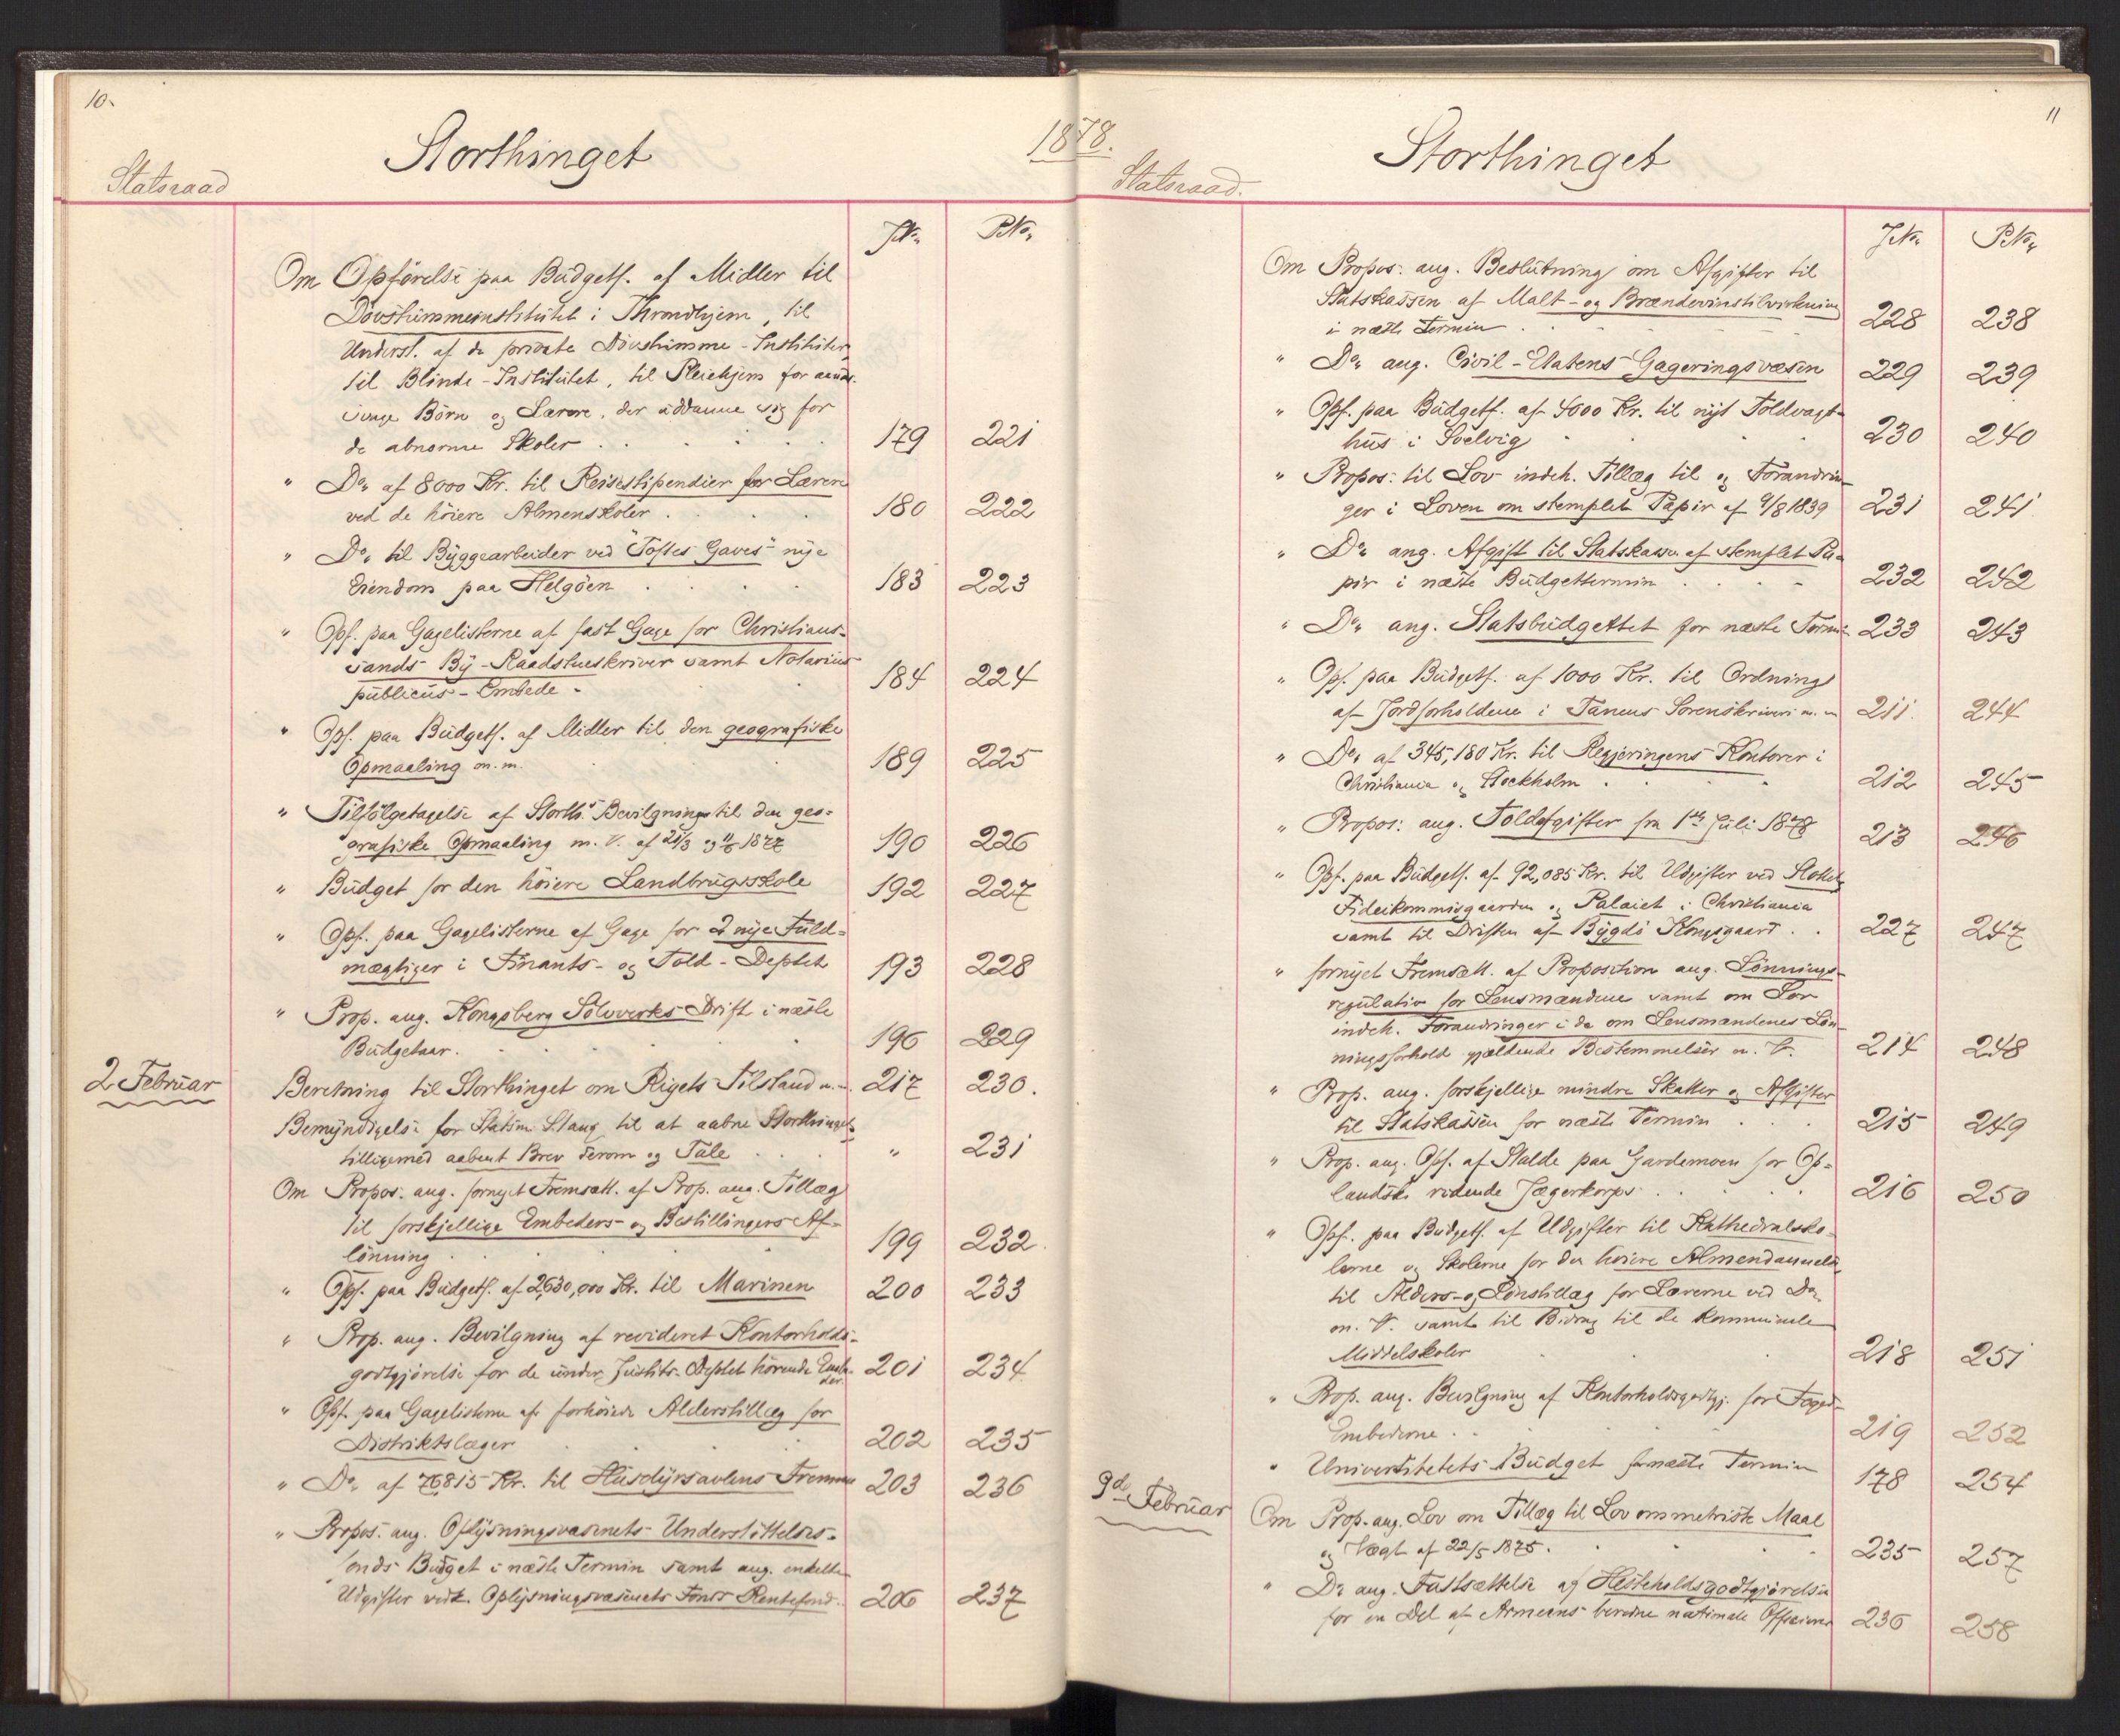 10.
Storthinget
1878.
Statsraad
JNo. PNo.
Om Opförelse paa Budgetf. af Midler til
Dövstummeinstitutet i Throndhjem, til
Underst. af de private Dövstumme-Institutter,
til Blinde-Institutet, til Pleiehjem for aands-
svage Börn og Lærere, der uddanne sig for
de abnorme Skoler . . . . 179 221
" Do. af 8000 Kr. til Reisestipendier for Lærere
ved de höiere Almenskoler . . . 180 222
" Do. til Byggearbeider ved "Toftes Gaves" nye
Eiendom paa Helgöen . . . 183 223
" Opf. paa Gagelisterne af fast Gage for Christians-
sands By-Raadstueskriver samt Notarius
publicus-Embede . 184 224
" Opf. paa Budgetf. af Midler til den geografiske
Opmaaling m. m. . . 189 225
" Tilfölgetagelse af Storth's Bevilgninger til den geo-
grafiske Opmaaling m. V. af 21/3 og 4/6 1877 190 226
" Budget for den höiere Landbrugsskole 192 227
" Opf. paa Gagelisterne af Gage for 2 nye Fuld-
mægtiger i Finants- og Told-Deptet 193 228
" Prop. ang. Kongsberg Sölvverks Drift i næste
Budgetaar . . . . 196 229
2 Februar
Beretning til Storthinget om Rigets Tilstand m. m. 217 230.
Bemyndigelse for Statsm. Stang til at aabne Storthinget
tilligemed aabent Brev derom og Tale . . . " 231
Om Propos. ang. fornyet Fremsætt. af Prop. ang. Tillæg
til forskjellige Embeders- og Bestillingers Af-
lönning . . . 199 232.
" Opf. paa Budgetf. af 2,630,000 Kr. til Marinen 200 233
" Prop. ang. Bevilgning af revideret Kontorholds-
godtgjörelse for de under Justits-Deptet hörende Embe-
der. 201 234
" Opf. paa Gagelisterne af forhöiede Alderstillæg for
Distriktslæger . . . 202 235
" Do. af 76815 Kr. til Husdyravlens Fremme 203 236
" Propos. ang. Oplysningsvæsenets Understöttelses-
fonds Budget i næste Termin samt ang. enkelte
Udgifter vedk. Oplysningsvæsenets Fonds Rentefond. 206 237
11
Storthinget
Statsraad.
JNo. PNo.
Om Propos. ang. Beslutning om Afgifter til
Statskassen af Malt- og Brændevinstilvirkning
i næste Termin . . . 228 238
" Do. ang. Civil-Etatens Gageringsvæsen 229 239
" Opf. paa Budgetf. af 4000 Kr. til nyt Toldvagt-
hus i Svelvig . . 230 240
" Propos. til Lov indeh. Tillæg til og Forandrin-
ger i Loven om stemplet Papir af 9/8 1839 231 241
" Do. ang. Afgift til Statskassen af stemplet Pa-
pir i næste Budgettermin . . . 232 242
" Do. ang. Statsbudgettet for næste Termin 233 243
" Opf. paa Budgetf. af 1000 Kr. til Ordning
af Jordforholdene i Tanens Sorenskriveri m. m 211. 244
" Do. af 345,180 Kr. til Regjeringens Kontorer i
Christiania og Stockholm . . 212 245
" Propos. ang. Toldafgifter fra 1ste Juli 1878 213 246
" Opf. paa Budgetf. af 92,085 Kr. til Udgifter ved Slottet,
Fideikommisgaarden og Palaiet i Christiania
samt til Driften af Bygdö Kongsgaard . . 227 247
" fornyet Fremsætt. af Proposition ang. Lönnings-
regulativ for Lensmændene samt om Lov
indeh. Forandringer i de om Lensmændenes Löns-
ningsforhold gjældende Bestemmelser m. V. 214 248
" Prop. ang. forskjellige mindre Skatter og Afgifter
til Statskassen for næste Termin . . . 215 249
" Prop. ang. Opf. af Stalde paa Gardemoen for Op-
landske ridende Jægerkorps . . . 216 250
" Opf. paa Budgetf. af Udgifter til Kathedralsko-
lerne og Skolerne for den höiere Almendannelse,
til Alders- og Lönstillæg for Lærerne ved Do.
m. V. samt til Bidrag til de kommunale
Middelskoler . . 218 251
" Prop. ang. Bevilgning af Kontorholdsgodtgj. for Foged-
Embederne . . 219 252
" Universitetets Budget for næste Termin 178 254
9de Februar
Om Prop. ang. Lov om Tillæg til Lov om metriske Maal
og Vægt af 22/5 1875 . . 235 257
" Do. ang. Fastsættelse af Hesteholdsgodtgjörelse
for en Del af Armeens beredne nationale Officierer 236 258